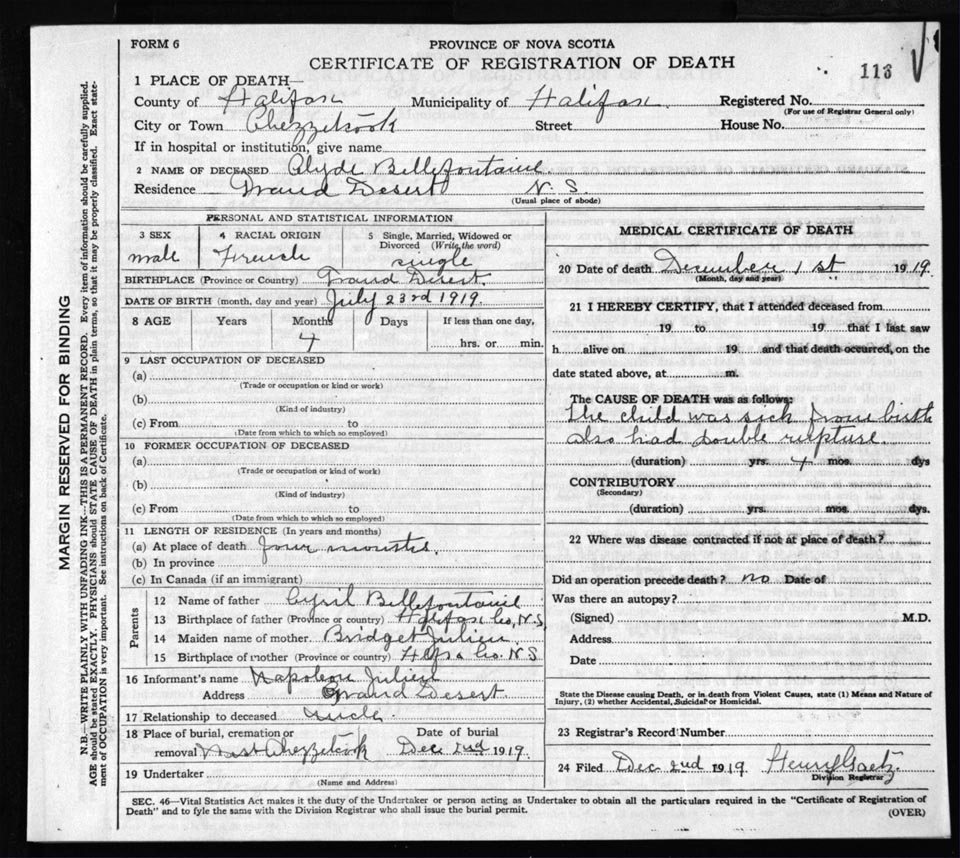 FORM 6
PROVINCE OF NOVA SCOTIA
CERTIFICATE OF REGISTRATION OF DEATH
113
1 PLACE OF DEATH—
County of Halifax Municipality of Halifax Registered No.
(For use of Registrar General only)
City or Town Chezzetcook Street House No.
If in hospital or institution, give name
2 NAME OF DECEASED Clyde Bellefontaine
Residence Grand Desert N. S.
(Usual place of abode)
PERSONAL AND STATISTICAL INFORMATION
3 SEX 4 RACIAL ORIGIN 5 Single, Married, Widowed or Divorced (Write the word)
male French single
BIRTHPLACE (Province or Country) Grand Desert.
DATE OF BIRTH (month, day and year) July 23rd 1919.
8 AGE Years Months Days If less than one day,
4 hrs. or min.
9 LAST OCCUPATION OF DECEASED
(a)
(Trade or occupation or kind or work)
(b)
(Kind of industry)
(c) From to
(Date from which to which so employed)
10 FORMER OCCUPATION OF DECEASED
(a)
(Trade or occupation or kind of work)
(b)
(Kind of industry)
(c) From to
(Date from which to which so employed)
11 LENGTH OF RESIDENCE (In years and months)
(a) At place of death four months.
(b) In province
(c) In Canada (if an immigrant)
Parents
12 Name of father Cyril Bellefontaine
13 Birthplace of father (Province or country) Halifax Co, N.S.
14 Maiden name of mother Bridget Julien
15 Birthplace of mother (Province or country) Hfx Co. N S
16 Informant's name Napoleon Julien
Address Grand Desert.
17 Relationship to deceased uncle.
18 Place of burial, cremation or Date of burial
removal West Chezzetcook Dec 2nd 1919.
19 Undertaker
(Name and Address)
MEDICAL CERTIFICATE OF DEATH
20 Date of death December 1st 1919.
(Month, day and year)
21 I HEREBY CERTIFY, that I attended deceased from
19 to 19 that I last saw
h alive on 19 and that death occurred, on the
date stated above, at m.
The CAUSE OF DEATH was as follows:
The child was sick from birth
also had double rupture.
(duration) yrs. 4 mos. dys
CONTRIBUTORY
(Secondary)
(duration) yrs. mos. dys.
22 Where was disease contracted if not at place of death?
Did an operation precede death? no Date of
Was there an autopsy?
(Signed) M.D.
Address
Date
State the Disease causing Death, or in death from Violent Causes, state (1) Means and Nature of
Injury, (2) whether Accidental, Suicidal or Homicidal.
23 Registrar's Record Number
24 Filed Dec 2nd 1919 Henry Gaetz.
Division Registrar
SEC. 46—Vital Statistics Act makes it the duty of the Undertaker or person acting as Undertaker to obtain all the particulars required in the "Certificate of Registration of
Death" and to fyle the same with the Division Registrar who shall issue the burial permit.
(OVER)
MARGIN RESERVED FOR BINDING
N.B.—WRITE PLAINLY WITH UNFADING INK—THIS IS A PERMANENT RECORD. Every item of information should be carefully supplied.
AGE should be stated EXACTLY. PHYSICIANS should STATE CAUSE OF DEATH in plain terms, so that it may be properly classified. Exact state-
ment of OCCUPATION is very important. See instructions on back of Certificate.